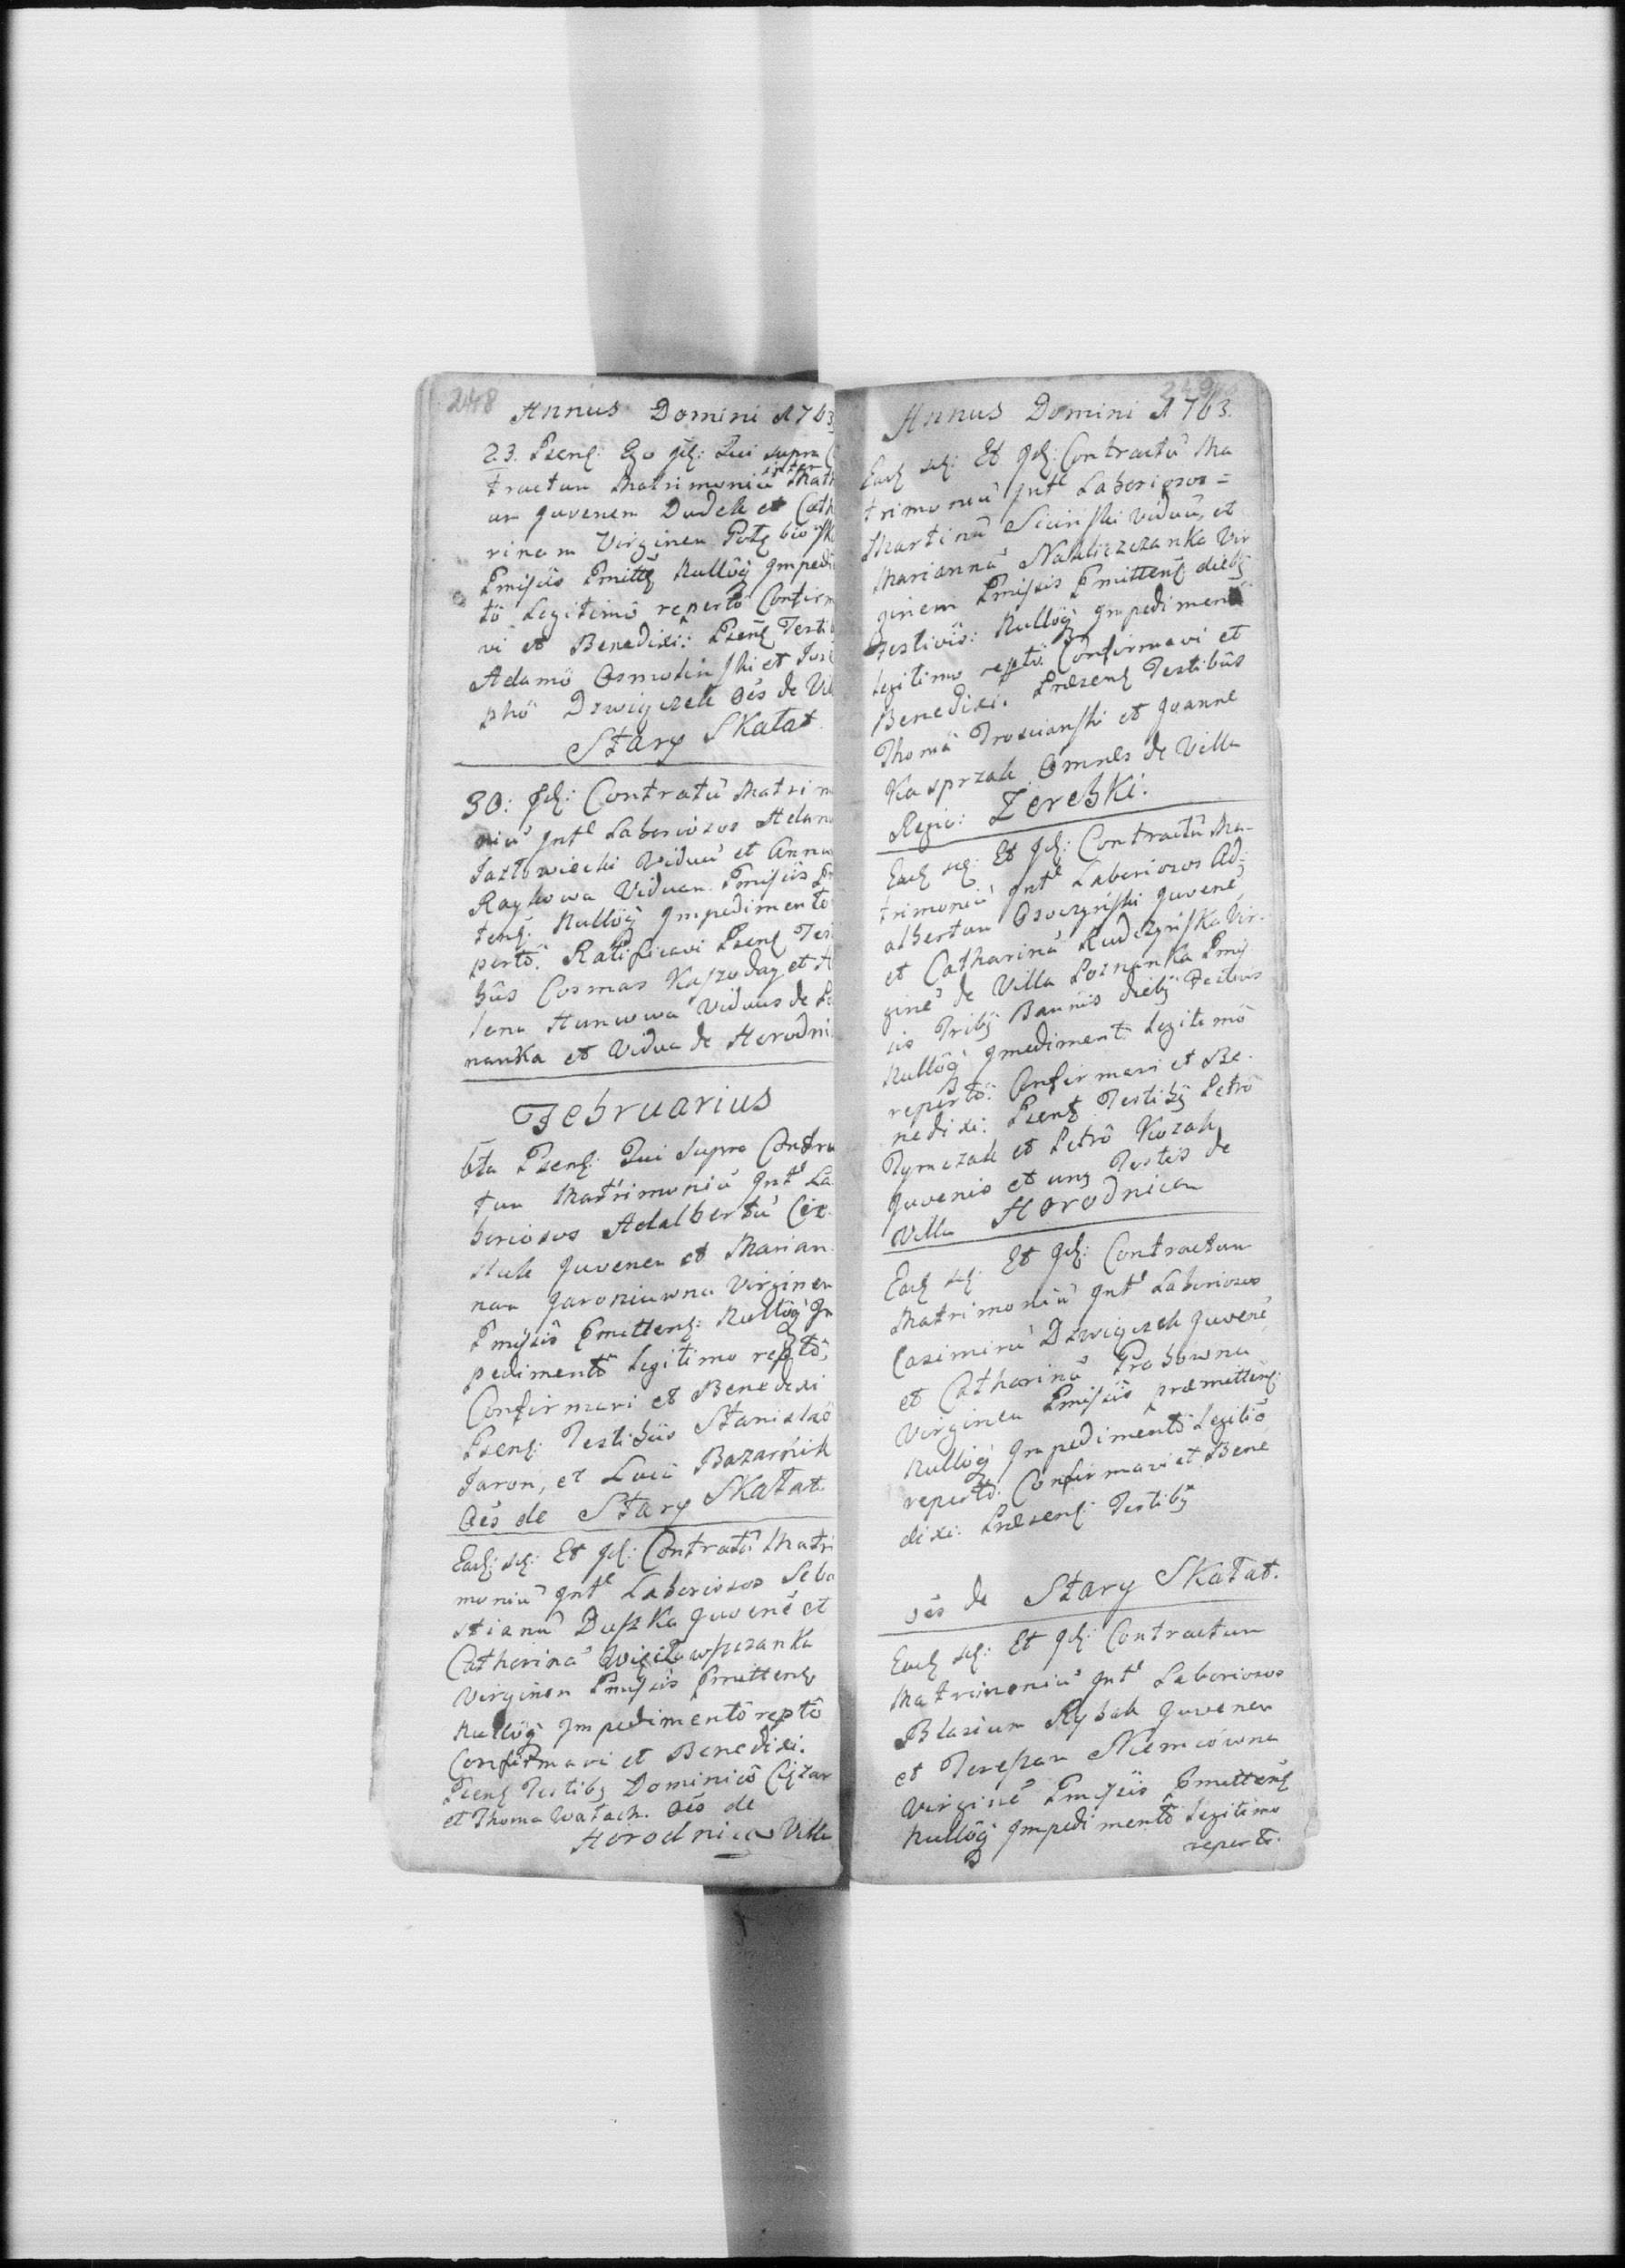 248
Annus Domini 1763
23. Psenę: Ego idę: Qui supra C
tractum Matrimoniũ inter Mat
um Juvenem Dudek et Cath
rinam Virginem
Pmissis Pmittę Nullóq̃ Impedi
tô Legitimô repertô Confirm
vi et Benedixi: Psenę Testi
Adamô Osmolinski et Jose
phô Dzwigczek Oẽs de Vil
Stary Skałat.
30: Idę: Contratũ Matrim
niũ Intę Laboriosos Adam
Jazłowiecki Viduũ et Anna
Raykowa Viduam Pmissis Pm
tenę. Nullóq̃ Impedimento
pertô. Ratificavi Psenę Testi
bus Cosmas Kaszoday et
lena Hanuwa Viduus de Po
nanka et Vidua de Horodni
Februarius
6ta Psenę: Qui Supra Contra
tum Matrimoniũ Intę La
boriosos Adalbertũ Cie
Juvenem et Marian
nam Jaroniuwna Virginem
Pmissis Pmittenę: Nullóq̃ Im
pedimentô Legitimo reptô,
Confirmavi et Benedixi
Psenę: Testibus Stanislaô
Jaron, et Lucâ Bazarnik
Oẽs de Stary Skałat.
Eadę: dię: Et Idę: Contratũ Matri
moniũ Intę Laboriosos Seba
stianũ Duszka Juvenẽ et
Catharinã
Virginem Pmissis Pmittenę
Nullóq̃ Impedimentô reptô
Confirmavi et Benedixi.
Psenę Testibꝫ Dominicô Ciężar
et Thoma Wałach. Oẽs de
Horodnica Villa
249
Annus Domini 1763.
Eadę dię: Et Idę: Contractũ Ma
trimoniũ Intę Laboriosos =
Martinũ Siciński Viduũ, et
Mariannã Naluszczanka Vir
ginem Pmissis Pmittenę diebꝫ
Festivis: Nullóq̃ Impediment
legitimo reptô. Confirmavi et
Benedixi. Præsenę Testibus
Thomâ Troscianski et Joanne
Kasprzak Omnes de Villa
Regio: Zerebki.
Eadę dię: Et Idę: Contractũ Ma-
trimoniũ Intę Laboriosos Ad-
albertum Osoczyński Juvenẽ
et Catharinã Rudczyńska Vir-
ginẽ de Villa Poznanka Pmis
sis Tribꝫ Bannis diebꝫ Festivis
Nullóq̃ Impediment. Legitimô
repertô: Confirmavi et Be-
nedixi: Psenę Testibꝫ Petrô
Tymczak et Petrô Kozak
Juvenis et unꝫ Testis de
Villa Horodnica
Eadę dię: Et Idę: Contractum
Matrimoniũ Intę Laboriosos
Casimirũ Dzwigczek Juvenẽ
et Catharinã Probowna
Virginem Pmissis præmittenę:
Nullóq̃ Impedimentô Legitiõ
repertô: Confirmavi et Bene
dixi: Præsenę: Testibꝫ
oẽs de Stary Skałat.
Eadę dię: Et Idę: Contractum
Matrimoniũ Intę Laboriosos
Blasium Rybak Juvenem
et Teresam Niemcówna
Virginẽ Pmissis Pmittenę
Nullóq̃ Impedimentô Legitimo
repertô.